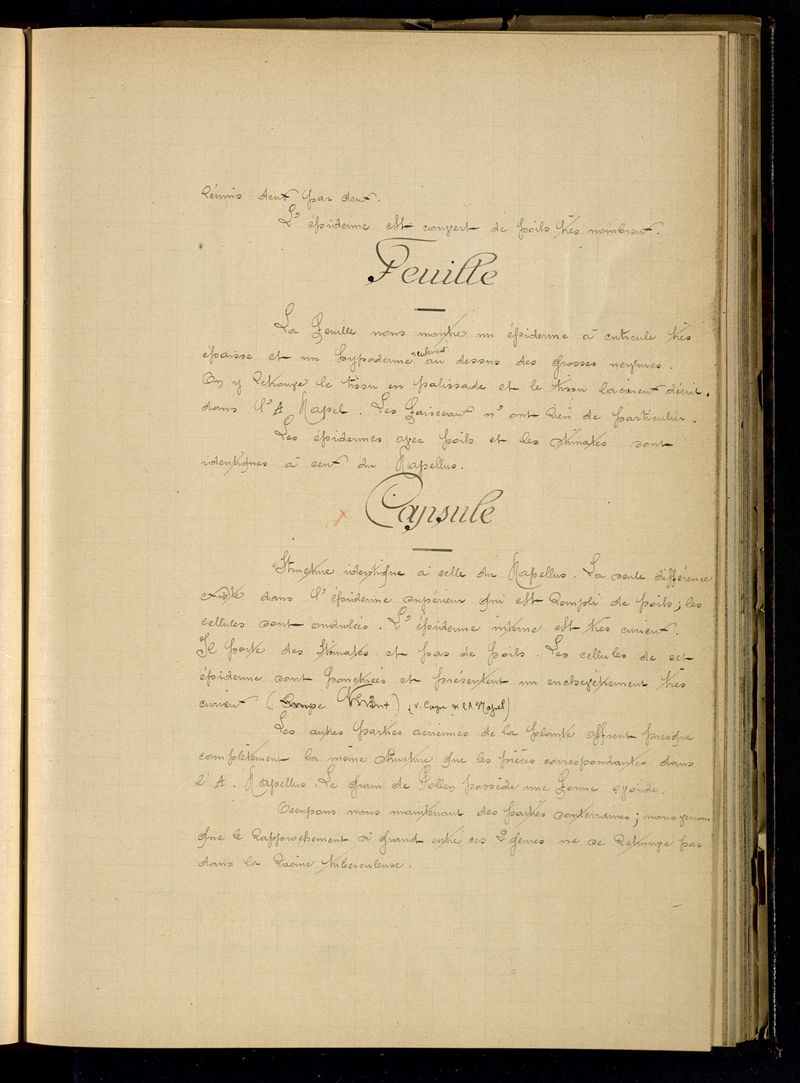 réunis deux par deux.
L'épiderme est couvert de poils très nombreux.
Feuille
La feuille nous montre un épiderme à cuticule très
épaisse et un hypoderme seulement au dessus des grosses nervures.
On y retrouve le tissu en palissade et le tissu lacuneux décrit
dans l'A Napel. Les faisceaux n'ont rien de particulier.
Les épidermes avec poils et les stomates sont
identiques à ceux du Napellus.
Capsule
Structure identique à celle du Napellus. La seule différence
existe dans l'épiderme supérieur qui est rempli de poils; les
cellules sont ondulées. L'épiderme interne est très curieux.
Il porte des stomates et pas de poils. Les cellules de cet
épiderme sont ponctuées et présentent un enchevêtrement très
curieux (Coupe ) (v. Coupe de l'A. Napel)
Les autres parties aériennes de la plante offrent presque
complètement la même structure que les pièces correspondantes dans
l'A. Napellus. Le grain de Pollen possède une forme ovoïde.
Occupons nous maintenant des parties souterraines; nous verrons
que le rapprochement si grand entre ces 2 genres ne se retrouve pas
dans la Racine tuberculeuse.